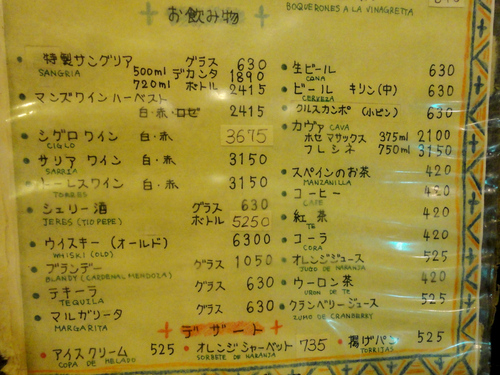 BOQUERONES A LA VINAGRETTA
お飲み物
特製サングリア グラス 630
SANGRIA 500ml デカンタ 1890
720ml ボトル 2415
マンズワイン ハーベスト
白・赤・ロゼ 2415
シグロ ワイン 白・赤 3675
CIGLO
サリア ワイン 白・赤 3150
SARRIA
トーレスワイン 白・赤 3150
TORRES
シェリー酒 グラス 630
JERES (TIO PEPE) ボトル 5250
ウイスキー (オールド) 6300
WHISKI (OLD)
ブランデー グラス 1050
BLANDY (CARDENAL MENDOZA)
テキーラ グラス 630
TEQUILA
マルガリータ グラス 630
MARGARITA
生ビール 630
CANA
ビール キリン(中) 630
CERVEZA
クルスカンポ (小ビン) 630
カヴァ CAVA
ホセ マサックス 375ml 2100
フレシネ 750ml 3150
スペインのお茶 420
MANZANILLA
コーヒー 420
CAFE
紅茶 420
TE
コーラ 420
CORA
オレンジジュース 525
JUGO DE NARANJA
ウーロン茶 420
URON DE TE
クランベリージュース 525
ZUMO DE CRANBERRY
デザート
アイスクリーム 525
COPA DE HELADO
オレンジシャーベット 735
SORBETE DE NARANJA
揚げパン 525
TORRIJAS